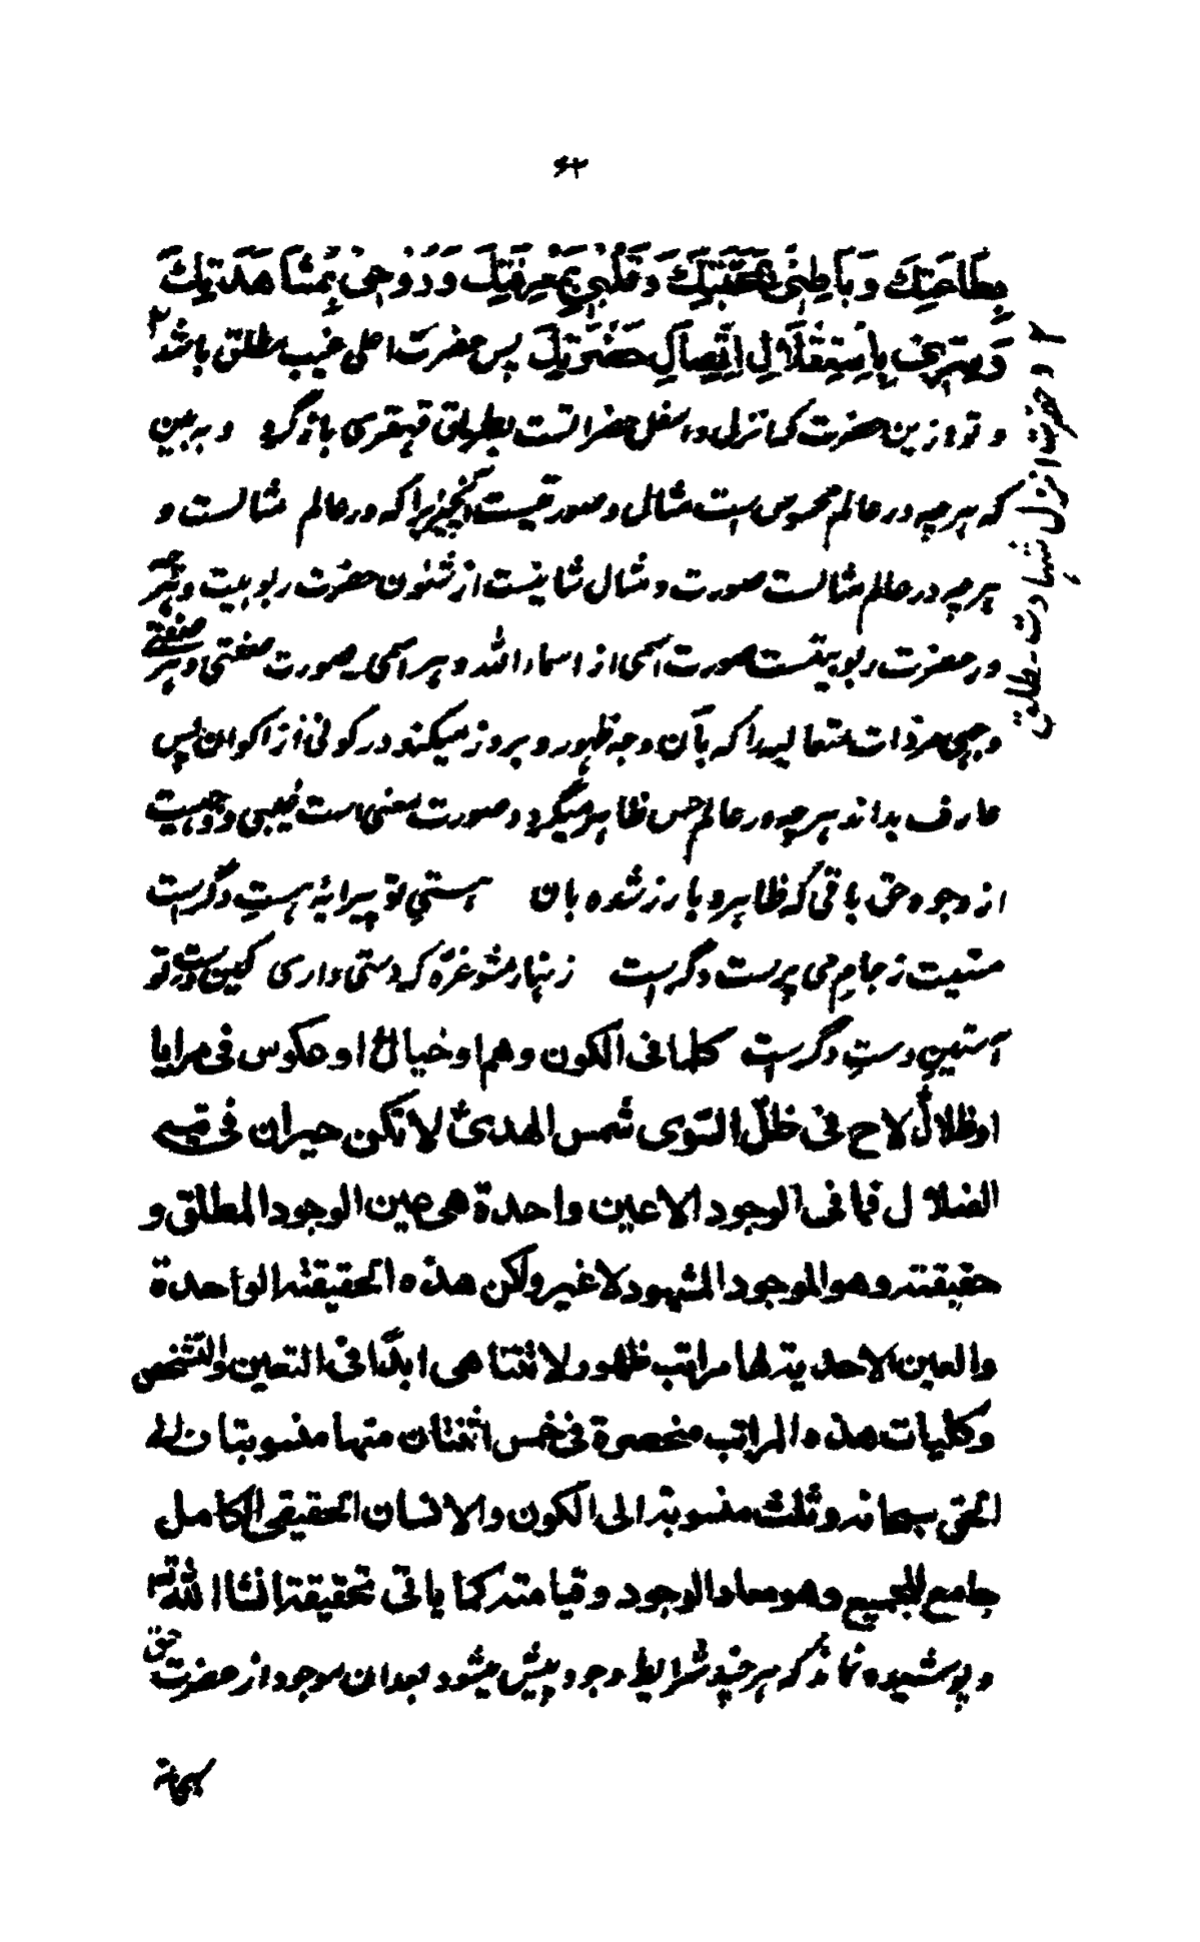 ۶۲
بِطَاعَتِكَ وَبَاطِنِیْ بِمَحَبَّتِكَ وَقَلْبِیْ بِمَعْرِفَتِكَ وَرُوْحِیْ بِمُشَاهَدَتِكَ
وَسِرِّیْ بِاسْتِقْلَالِ اِتِّصَالِ حَضْرَتِكَ پس حضرت اعلی غیب مطلق باشد ۲
و تو ازین حضرت که تنزلی و اسفل حضراتست بطریق قهقری بازگرد و به بین
که هرچه در عالم محسوس است مثال و صورتیست آنچیز را که در عالم مثالست و
هرچه در عالم مثالست صورت و مثال شانیست از شئون حضرت ربوبیت و هرچه
در حضرت ربوبیتست صورت اسمی از اسماء الله و هر اسمی صورت صفتی و هر صفتی
وجهی مر ذات متعالیه را که بآن وجه ظهور و بروز میکند در کونی از اکوان پس
عارف بداند هرچه در عالم حس ظاهر میگردد صورت معنی است غیبی و وجهیست
از وجوه حق باقی که ظاهر و بارز شده بان هستیِ تو پیرایهٔ هستِ دگرست
مستیت ز جامِ می پرست دگرست زنهار مشو غرّه که دستی داری کین دست تو
آستینِ دستِ دگرست کلما فی الکون وهم او خیالٌ او عکوس فی مرایا
او ظلالٌ لاح فی ظلّ السّوی شمس الهدیٰ لا تکن حیران فی تیه
الضلال فما فی الوجود الا عین واحدة هی عین الوجود المطلق و
حقیقته وهو الموجود المشهود لا غیر ولکن هذه الحقیقة الواحدة
والعین الاحدیة لها مراتب ظهور لا تتناهی ابدًا فی التعین والتشخص
وکلیات هذه المراتب منحصرة فی خمس اثنتان منها منسوبتان الی
الحق سبحانه و ثلث منسوبة الی الکون والانسان الحقیقی الکامل
جامع للجمیع وهو معاد الوجود و قیامته کما یاتی تحقیقة انشاالله تعالی
و پوشیده نماند که هرچند شرایط وجود بیش میشود بعد ان موجود از حضرت حق
سبحانه
۲ و حضرت انزل شهادت مطلق